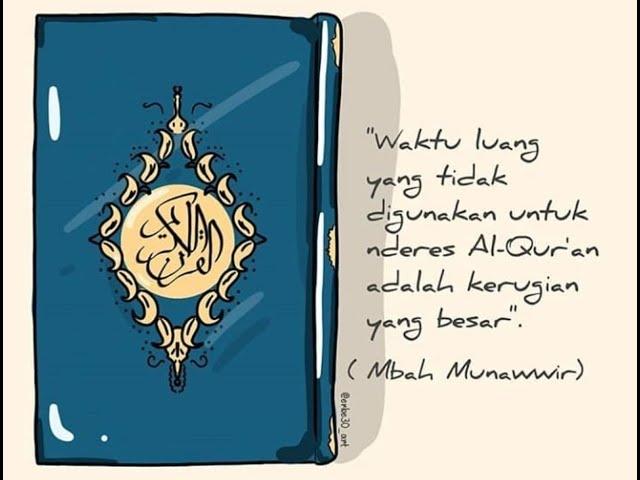 القرآن الكريم
"Waktu luang
yang tidak
digunakan untuk
nderes Al-Qur'an
adalah kerugian
yang besar".
( Mbah Munawwir)
@enbe30_art